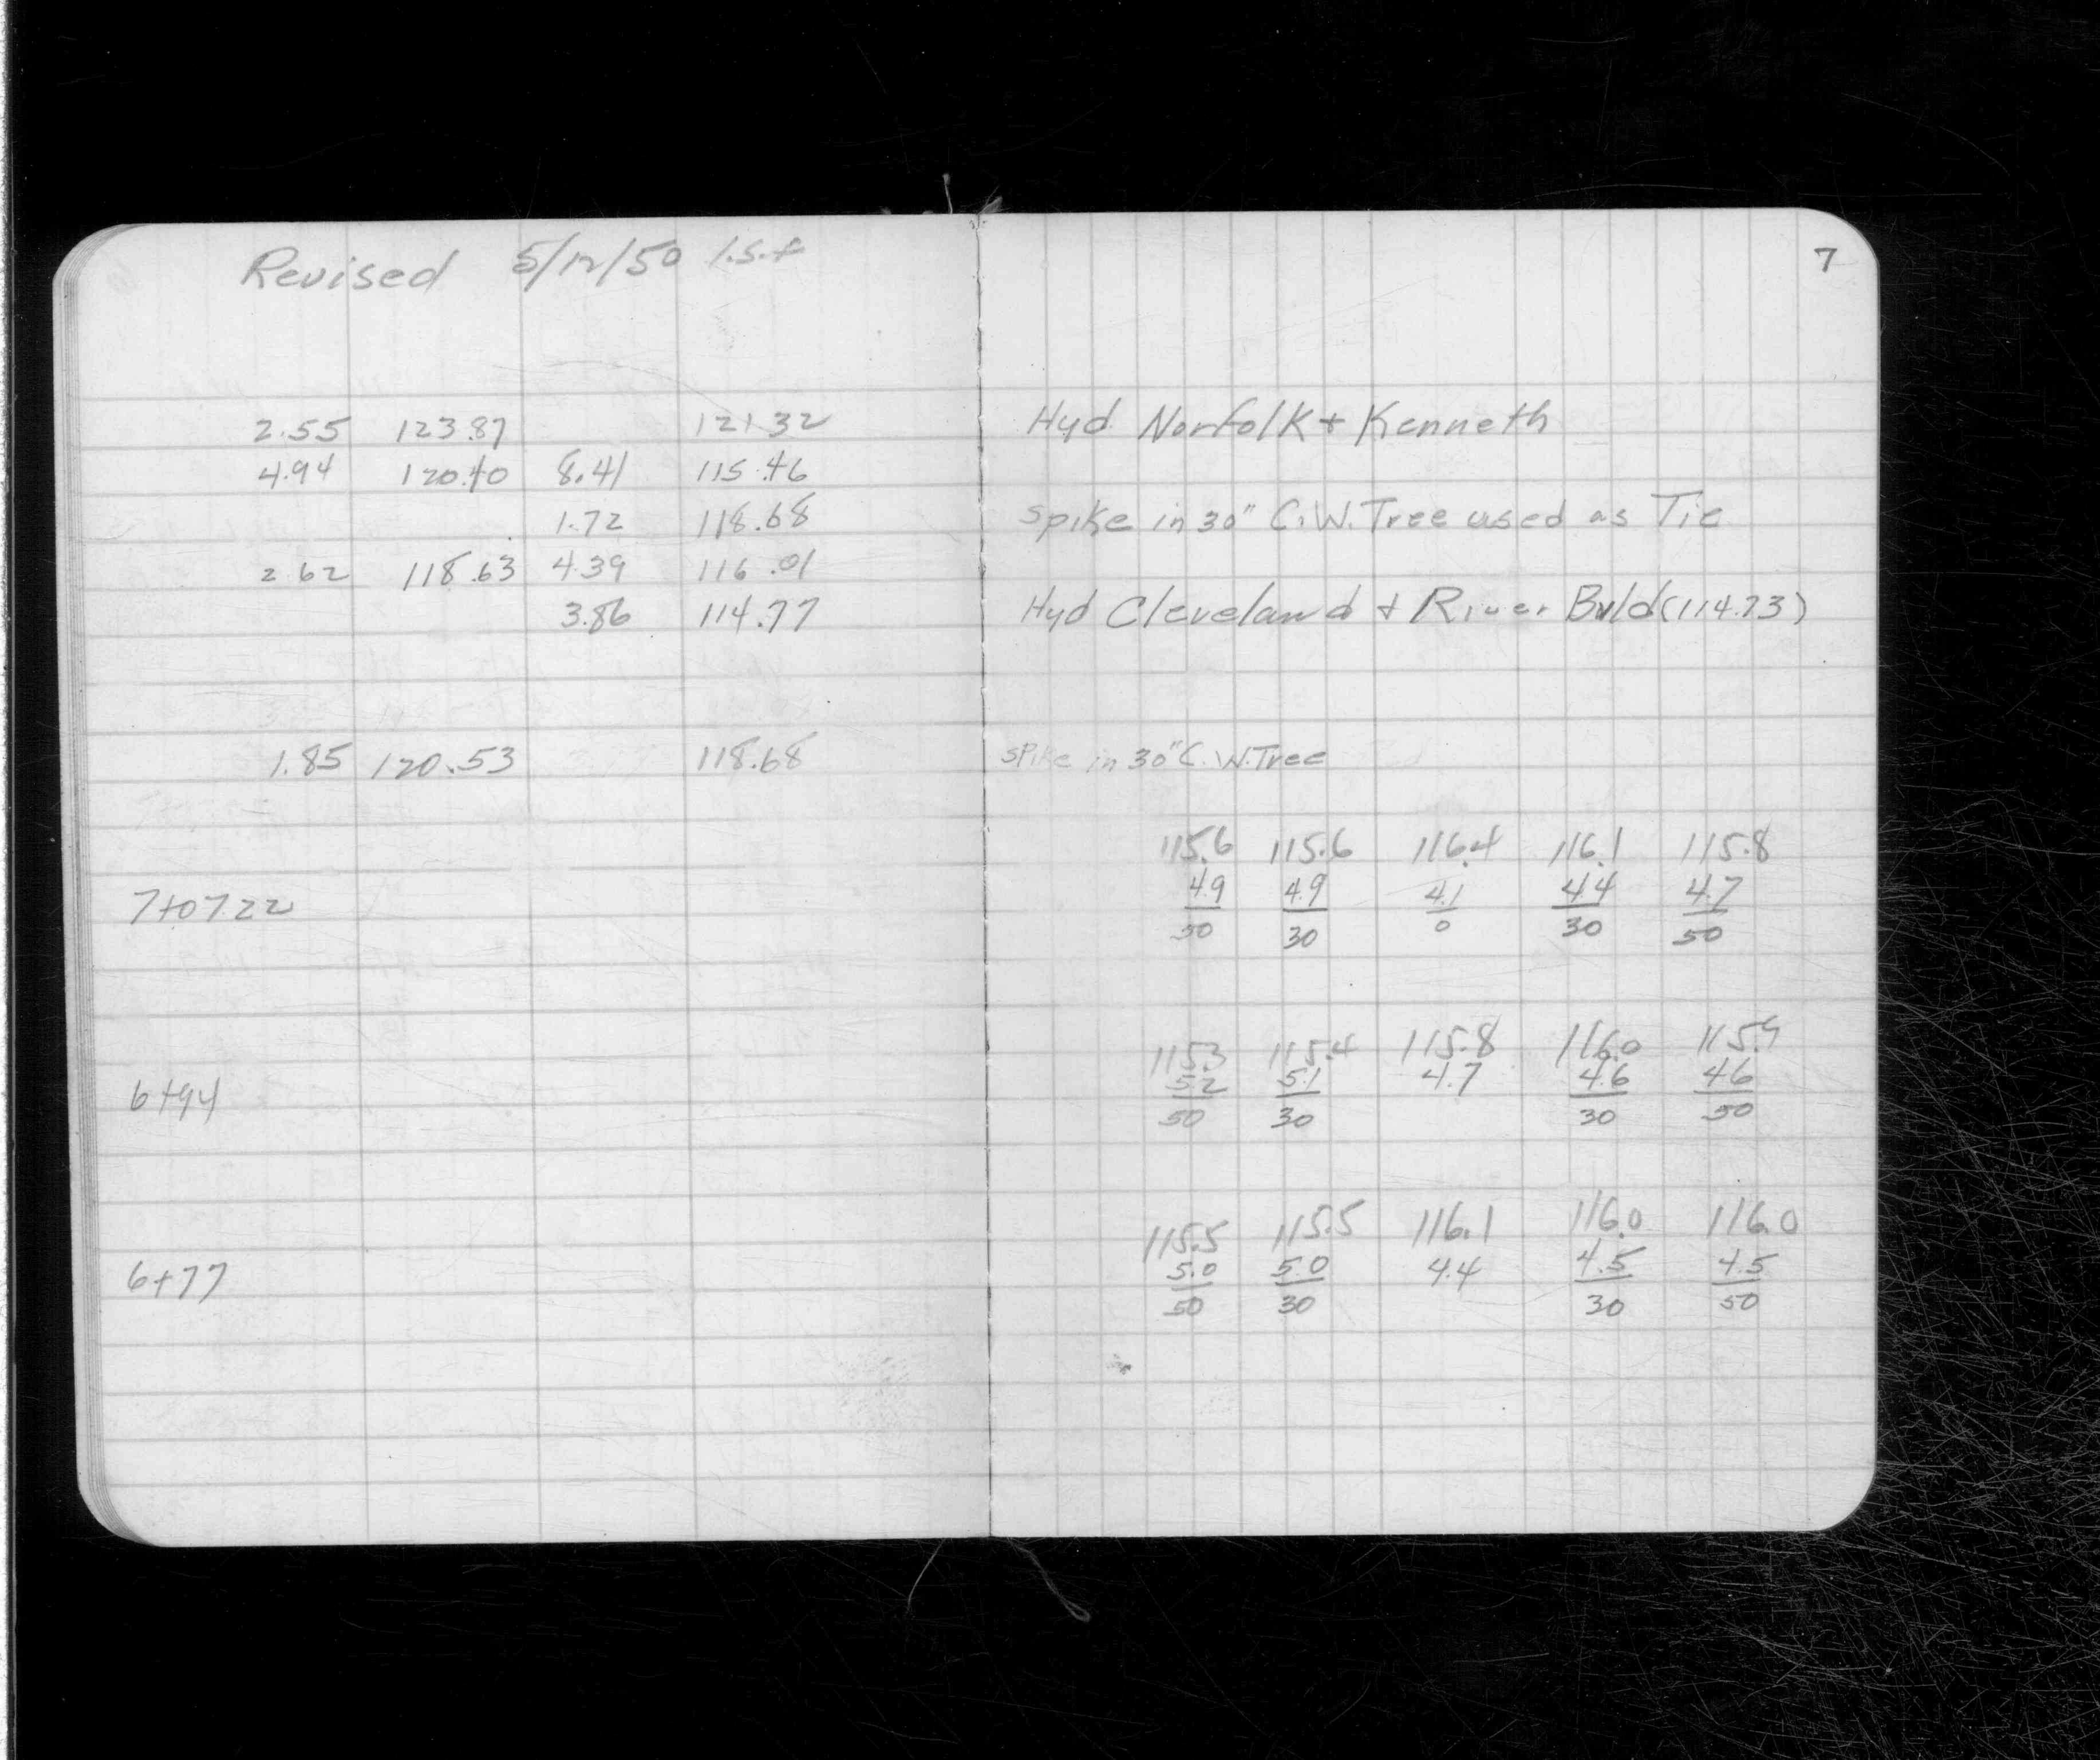 Revised 5/12/50
7
2.55 123.87 121.32 Hyd Norfolk + Kenneth
4.94 120.40 8.41 115.46
1.72 118.68 Spike in 30" C.W. Tree used as Tie
2.62 118.63 4.39 116.01
3.86 114.77 Hyd Cleveland + River Bvld (114.73)
1.85 120.53 118.68 Spike in 30" C.W. Tree
115.6 115.6 116.4 116.1 115.8
7+07.22 4.9 4.9 4.1 4.4 4.7
50 30 0 30 50
115.3 115.4 115.8 116.0 115.9
6+94 5.2 5.1 4.7 4.6 4.6
50 30 30 50
115.5 115.5 116.1 116.0 116.0
6+77 5.0 5.0 4.4 4.5 4.5
50 30 30 50